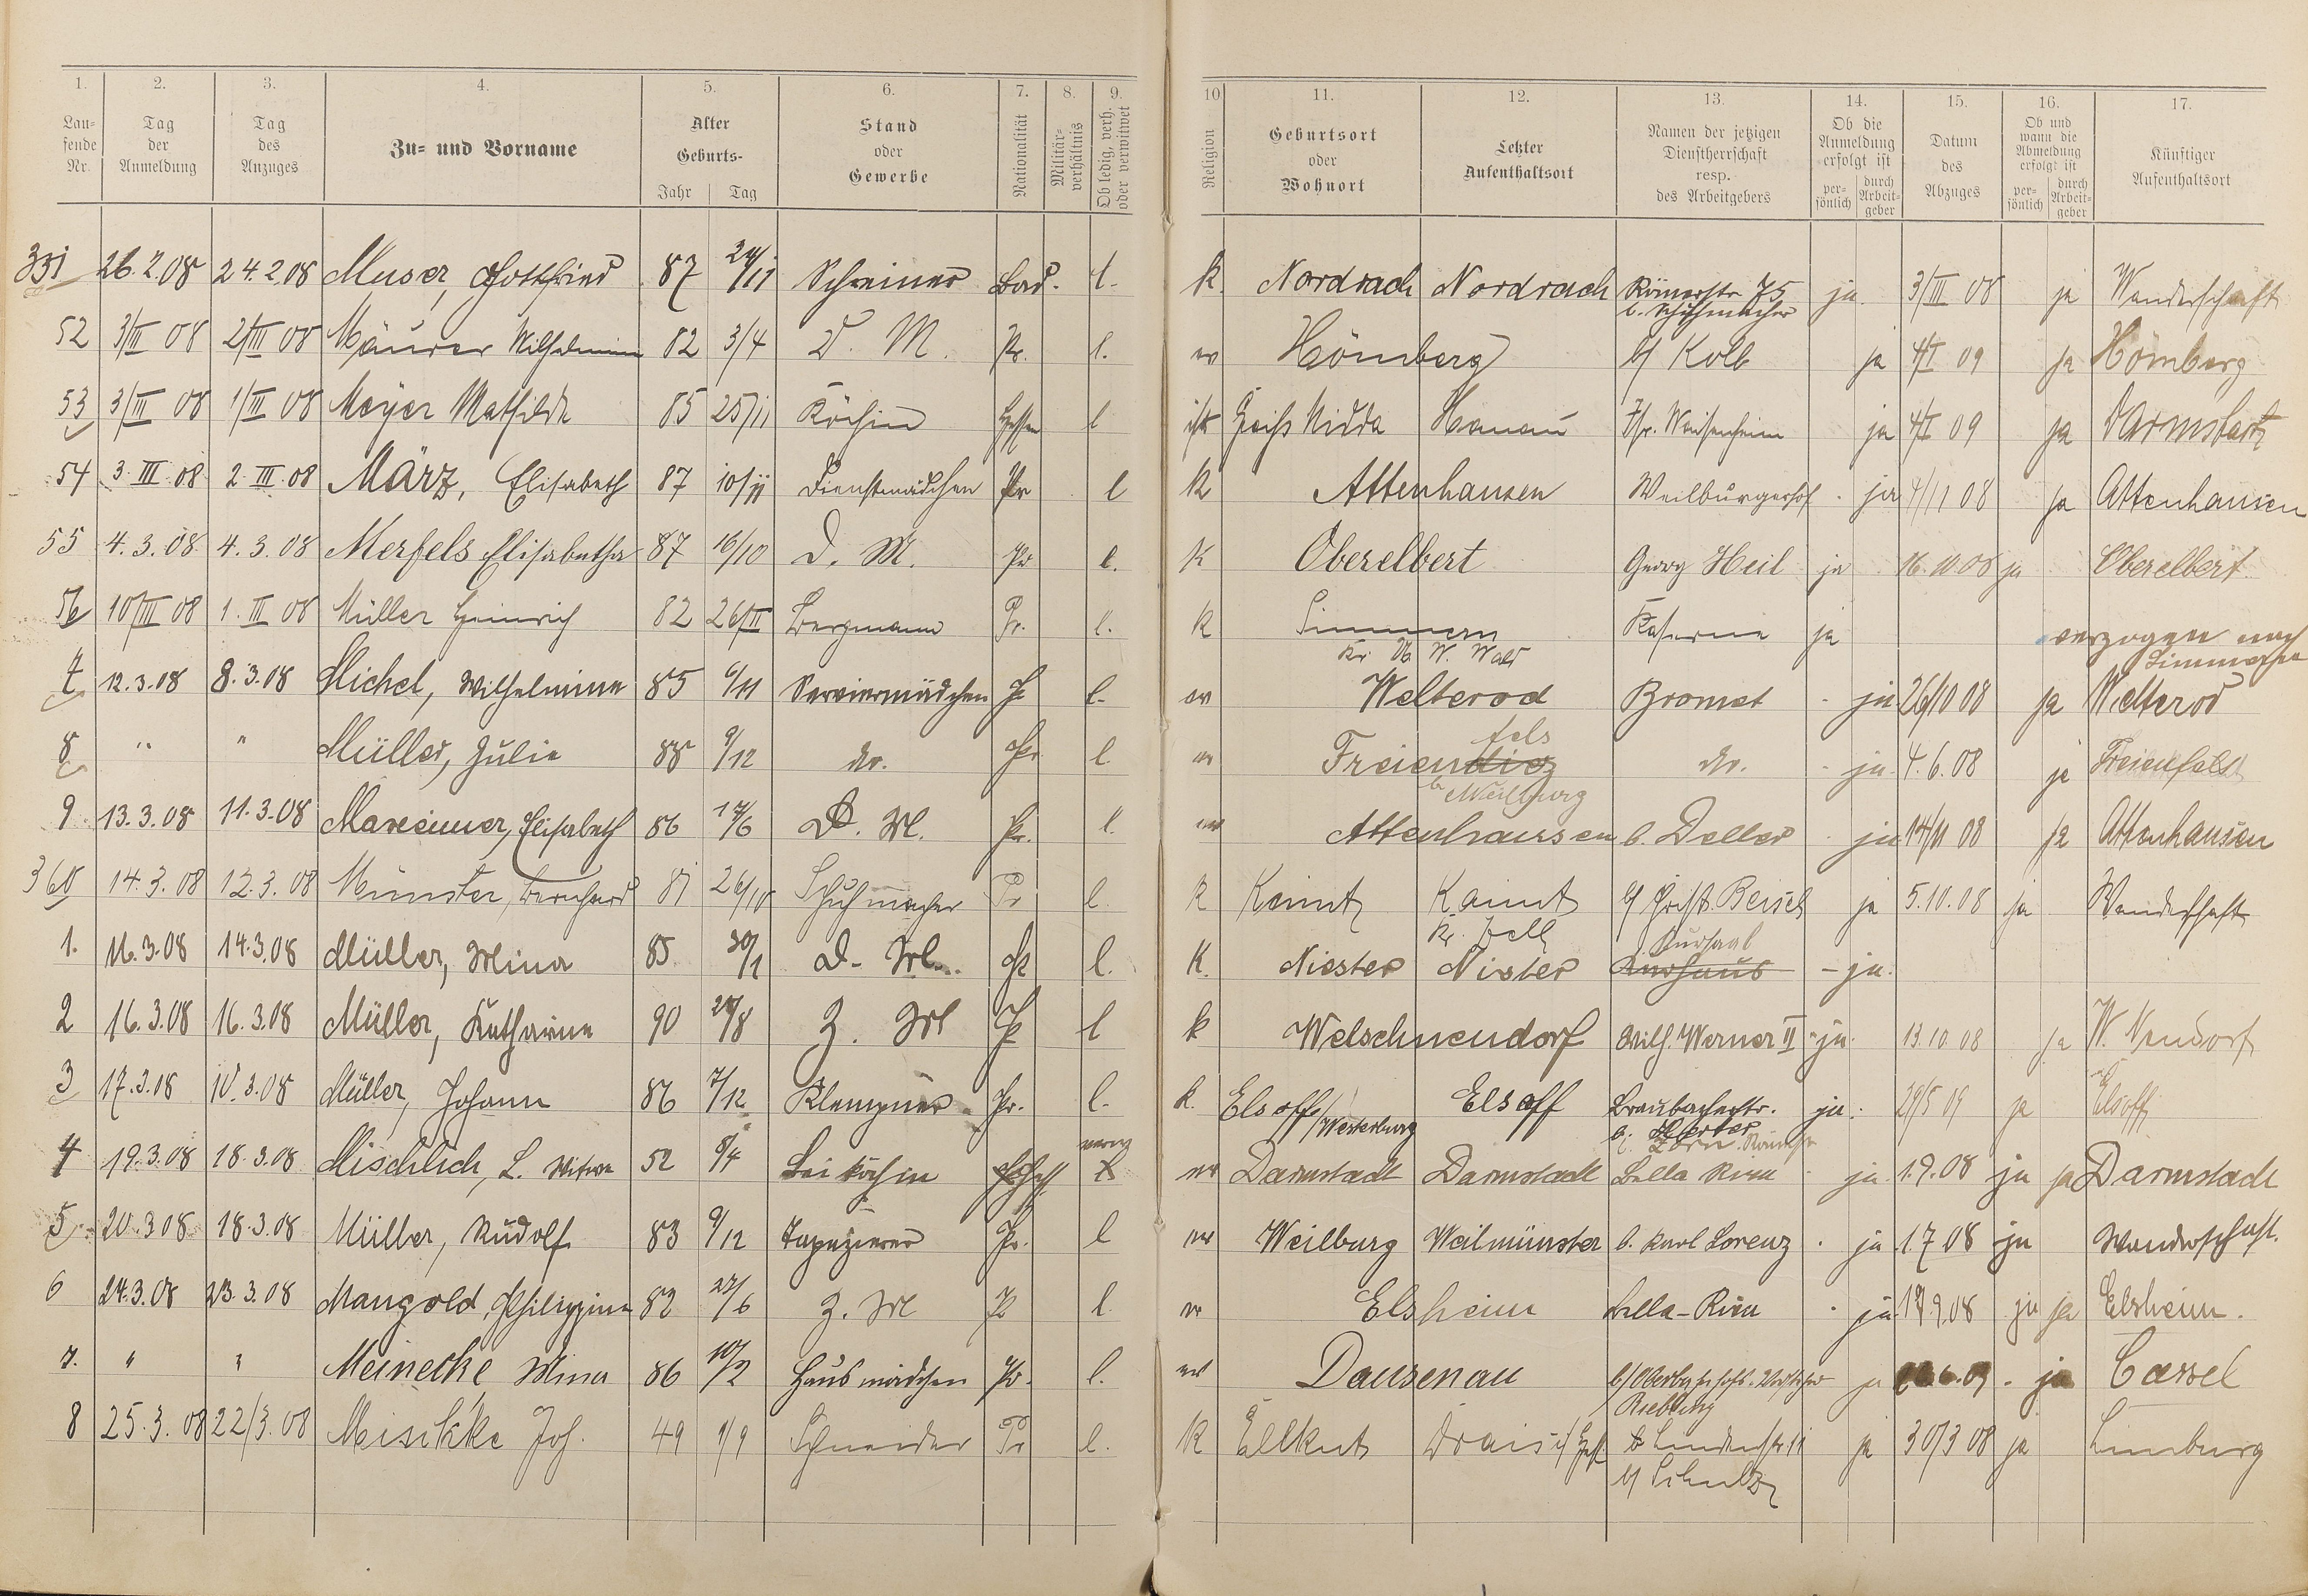 1. 2. 3. 4. 5. 6. 7. 8. 9. 10 11. 12. 13. 14. 15. 16. 17.
Lau-
fende
Nr.
Tag
der
Anmeldung
Tag
des
Anzuges
Zu- und Vorname
Alter
Geburts-
Jahr Tag
Stand
oder
Gewerbe
Nationalität
Militär-
verhältnis
Ob ledig, verh.
oder verwitwet
Religion
Geburtsort
oder
Wohnort
Letzter
Aufenthaltsort
Namen der jetzigen
Dienstherrschaft
resp.
des Arbeitgebers
Ob die
Anmeldung
erfolgt ist
per-
sönlich
durch
Arbeit-
geber
Datum
des
Abzuges
Ob und
wann die
Abmeldung
erfolgt ist
per-
sönlich
durch
Arbeit-
geber
Künftiger
Aufenthaltsort
351 26.2.08 24.2.08 Muser, Gottfried 87 Schreiner Bad. l. k. Nordrach Nordrach Römerstr. 75 ja 3/III 08 ja Wanderschaft
b. Schuhmacher
52 3/III 08 2/III 08 Mäurer Wilhelmine 82 3/4 D. M. Pr. l. ev Hömberg b/ Kolb ja 4/I 09 ja Hömberg
53 3/III 08 1/III 08 Mayer Mathilde 85 25/11 Köchin Hessen l isr Geiß Nidda Hanau ja 4/I 09 ja Darmstadt
54 3 III 08 2 III 08 März, Elisabeth 87 Dienstmädchen Pr l k Attenhausen Weilburgerhof ja 4/11 08 ja Attenhausen
55 4.3.08 4.3.08 Merfels Elisabetha 87 16/10 D. M. Pr l. k Oberelbert Georg Heil ja 16.10.08 ja Oberelbert
56 10/III 08 1. III 08 Müller Heinrich 82 26/II Bergmann Pr. l. k Simmern Kaserne ja verzogen nach
Kr. U. W. Wald Simmern
7 12.3.08 8.3.08 Michel, Wilhelmine 85 6/11 Serviermädchen Pr l. ev Welterod Bromet ja 26/10 08 ja Welterod
fels
8 " " Müller, Julie 88 9/12 do. Pr. l. ev Freiendiez do. ja 4.6.08 ja Freienfels
b Weilburg
9 13.3.08 11.3.08 Elisabeth 86 17/6 D. M. Pr. l. ev Attenhausen b. Deller ja 14/11 08 ja Attenhausen
360 14.3.08 12.3.08 Münster, Bernhard 81 26/10 Schuhmacher Pr l. k Kaimt Kaimt b/ Christ. Beisel ja 5.10.08 ja Wanderschaft
Kr. Zell
Kursaal
1. 16.3.08 14.3.08 Müller, Mina 85 30/1 D. M. Pr l. K. Niester Nister Kurhaus ja
2 16.3.08 16.3.08 Müller, Katharine 90 28/8 Z. M Pr l k Welschneudorf Wilh. Werner II ja 13.10.08 ja W. Neudorf
3 17.3.08 10.3.08 Müller, Johann 86 7/12 Klempner Pr. l. k. Elsoff/Westerburg Elsoff Braubacherstr. ja 29/5 09 ja Elsoff
4 19.3.08 18.3.08 Mischlich, L. Witwe 52 8/4 Beiköchin ev Darmstadt Darmstadt Bella Riva ja 1.9.08 ja ja Darmstadt
5 20.3.08 18.3.08 Müller, Rudolf 83 9/12 Tapezierer Pr. l ev Weilburg Weilmünster b. Karl Lorenz ja 1.7.08 ja Wanderschaft.
6 24.3.08 23.3.08 Mangold, Philippine 82 27/6 Z. M Pr l. ev Elsheim Bella-Riva ja 19.9.08 ja ja Elsheim.
7. " " Meinecke Mina 86 10/2 Hausmädchen Pr. l. ev Dausenau ja ja Cassel
8 25.3.08 22/3.08 Joh. 49 1/9 Schneider Pr l. k Ellkut Drais b Lindenstr. 11 ja 30/3 08 ja Limburg
b/ Schulz